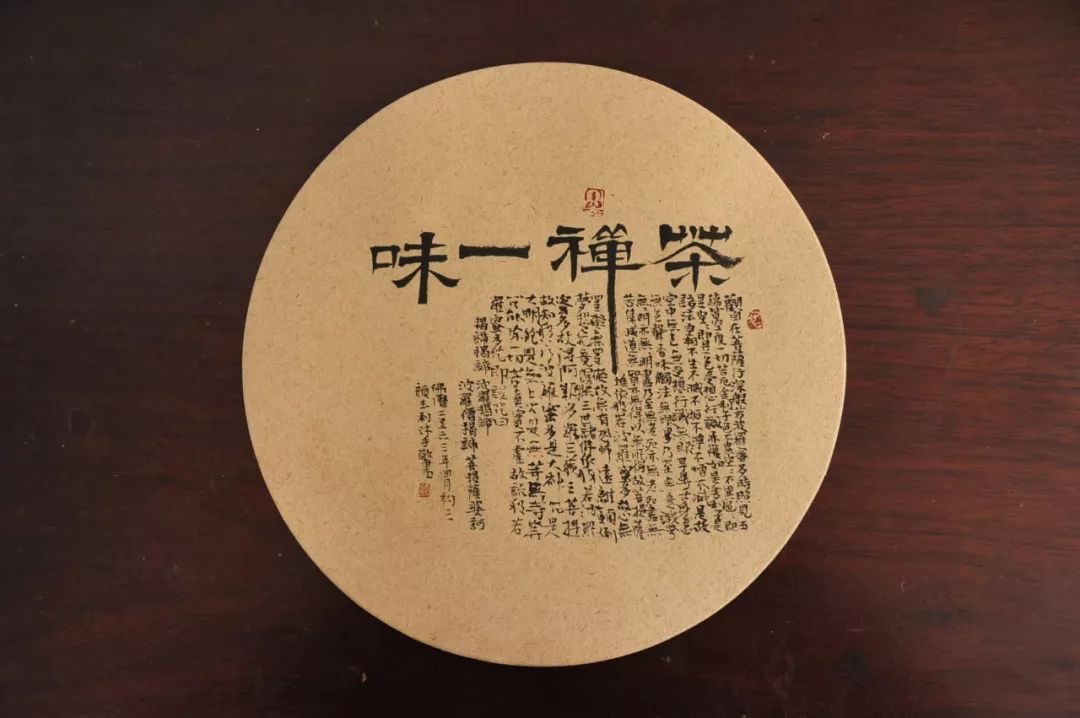 茶禪一味
觀自在菩薩行深般若波羅蜜多時照見五
蘊皆空度一切苦厄舍利子色不異空空不異色色即
是空空即是色受想行識亦復如是舍利子是
諸法空相不生不滅不垢不淨不增不減是故
空中無色無受想行識無眼耳鼻舌身意
無色聲香味觸法無眼界乃至無意識界
無無明亦無無明盡乃至無老死亦無老死盡無
苦集滅道無智亦無得以無所得故菩提薩
埵依般若波羅蜜多故心無
罣礙無罣礙故無有恐怖遠離顛倒
夢想究竟涅槃三世諸佛依般若波羅
蜜多故得阿耨多羅三藐三菩提
故知般若波羅蜜多是大神咒是
大明咒是無上咒是無等等
咒能除一切苦真實不虛故說般若
波羅蜜多咒即說咒曰
揭諦揭諦 波羅揭諦
波羅僧揭諦 菩提薩婆訶
佛曆二五六二年四月初二
沐手敬書